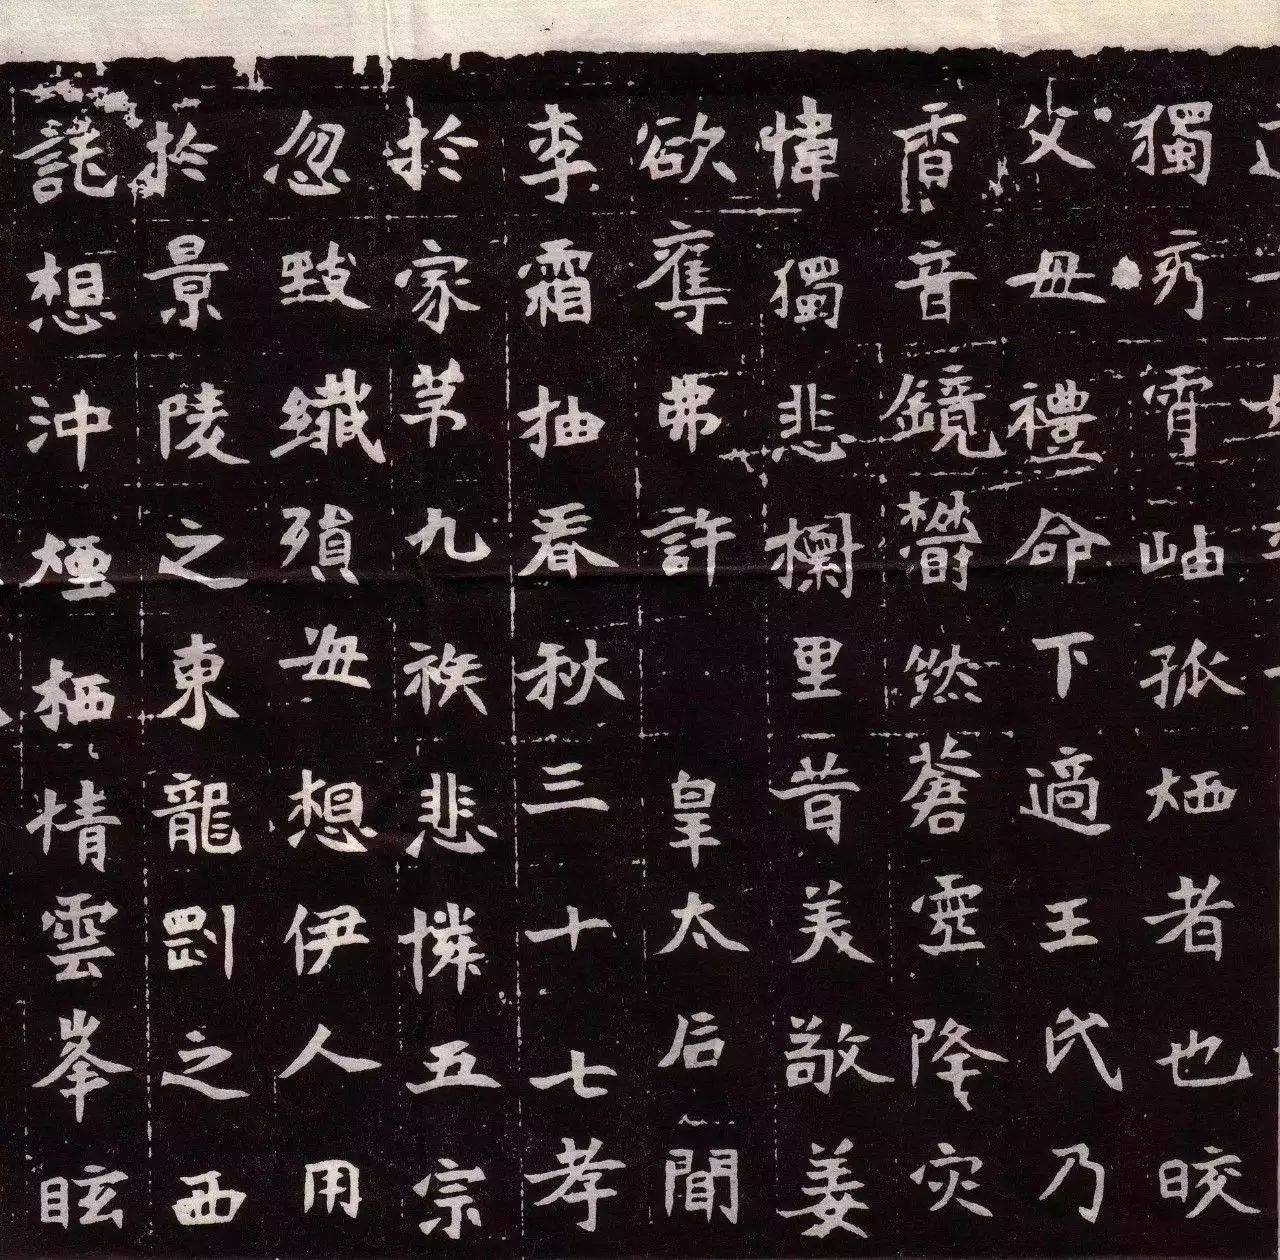 獨秀霄岫孤栖者也晈
父毋禮命下適王氏乃
香音鏡欝然蒼靈降灾
幃獨悲欄里昔美敬姜
欲奪弗許 皇太后聞
李霜抽春秋三十七孝
扵家苐九族悲憐五宗
忽纖殞毋想伊人用
扵景陵之東龍剛之西
託想沖煙栖情雲峯眩